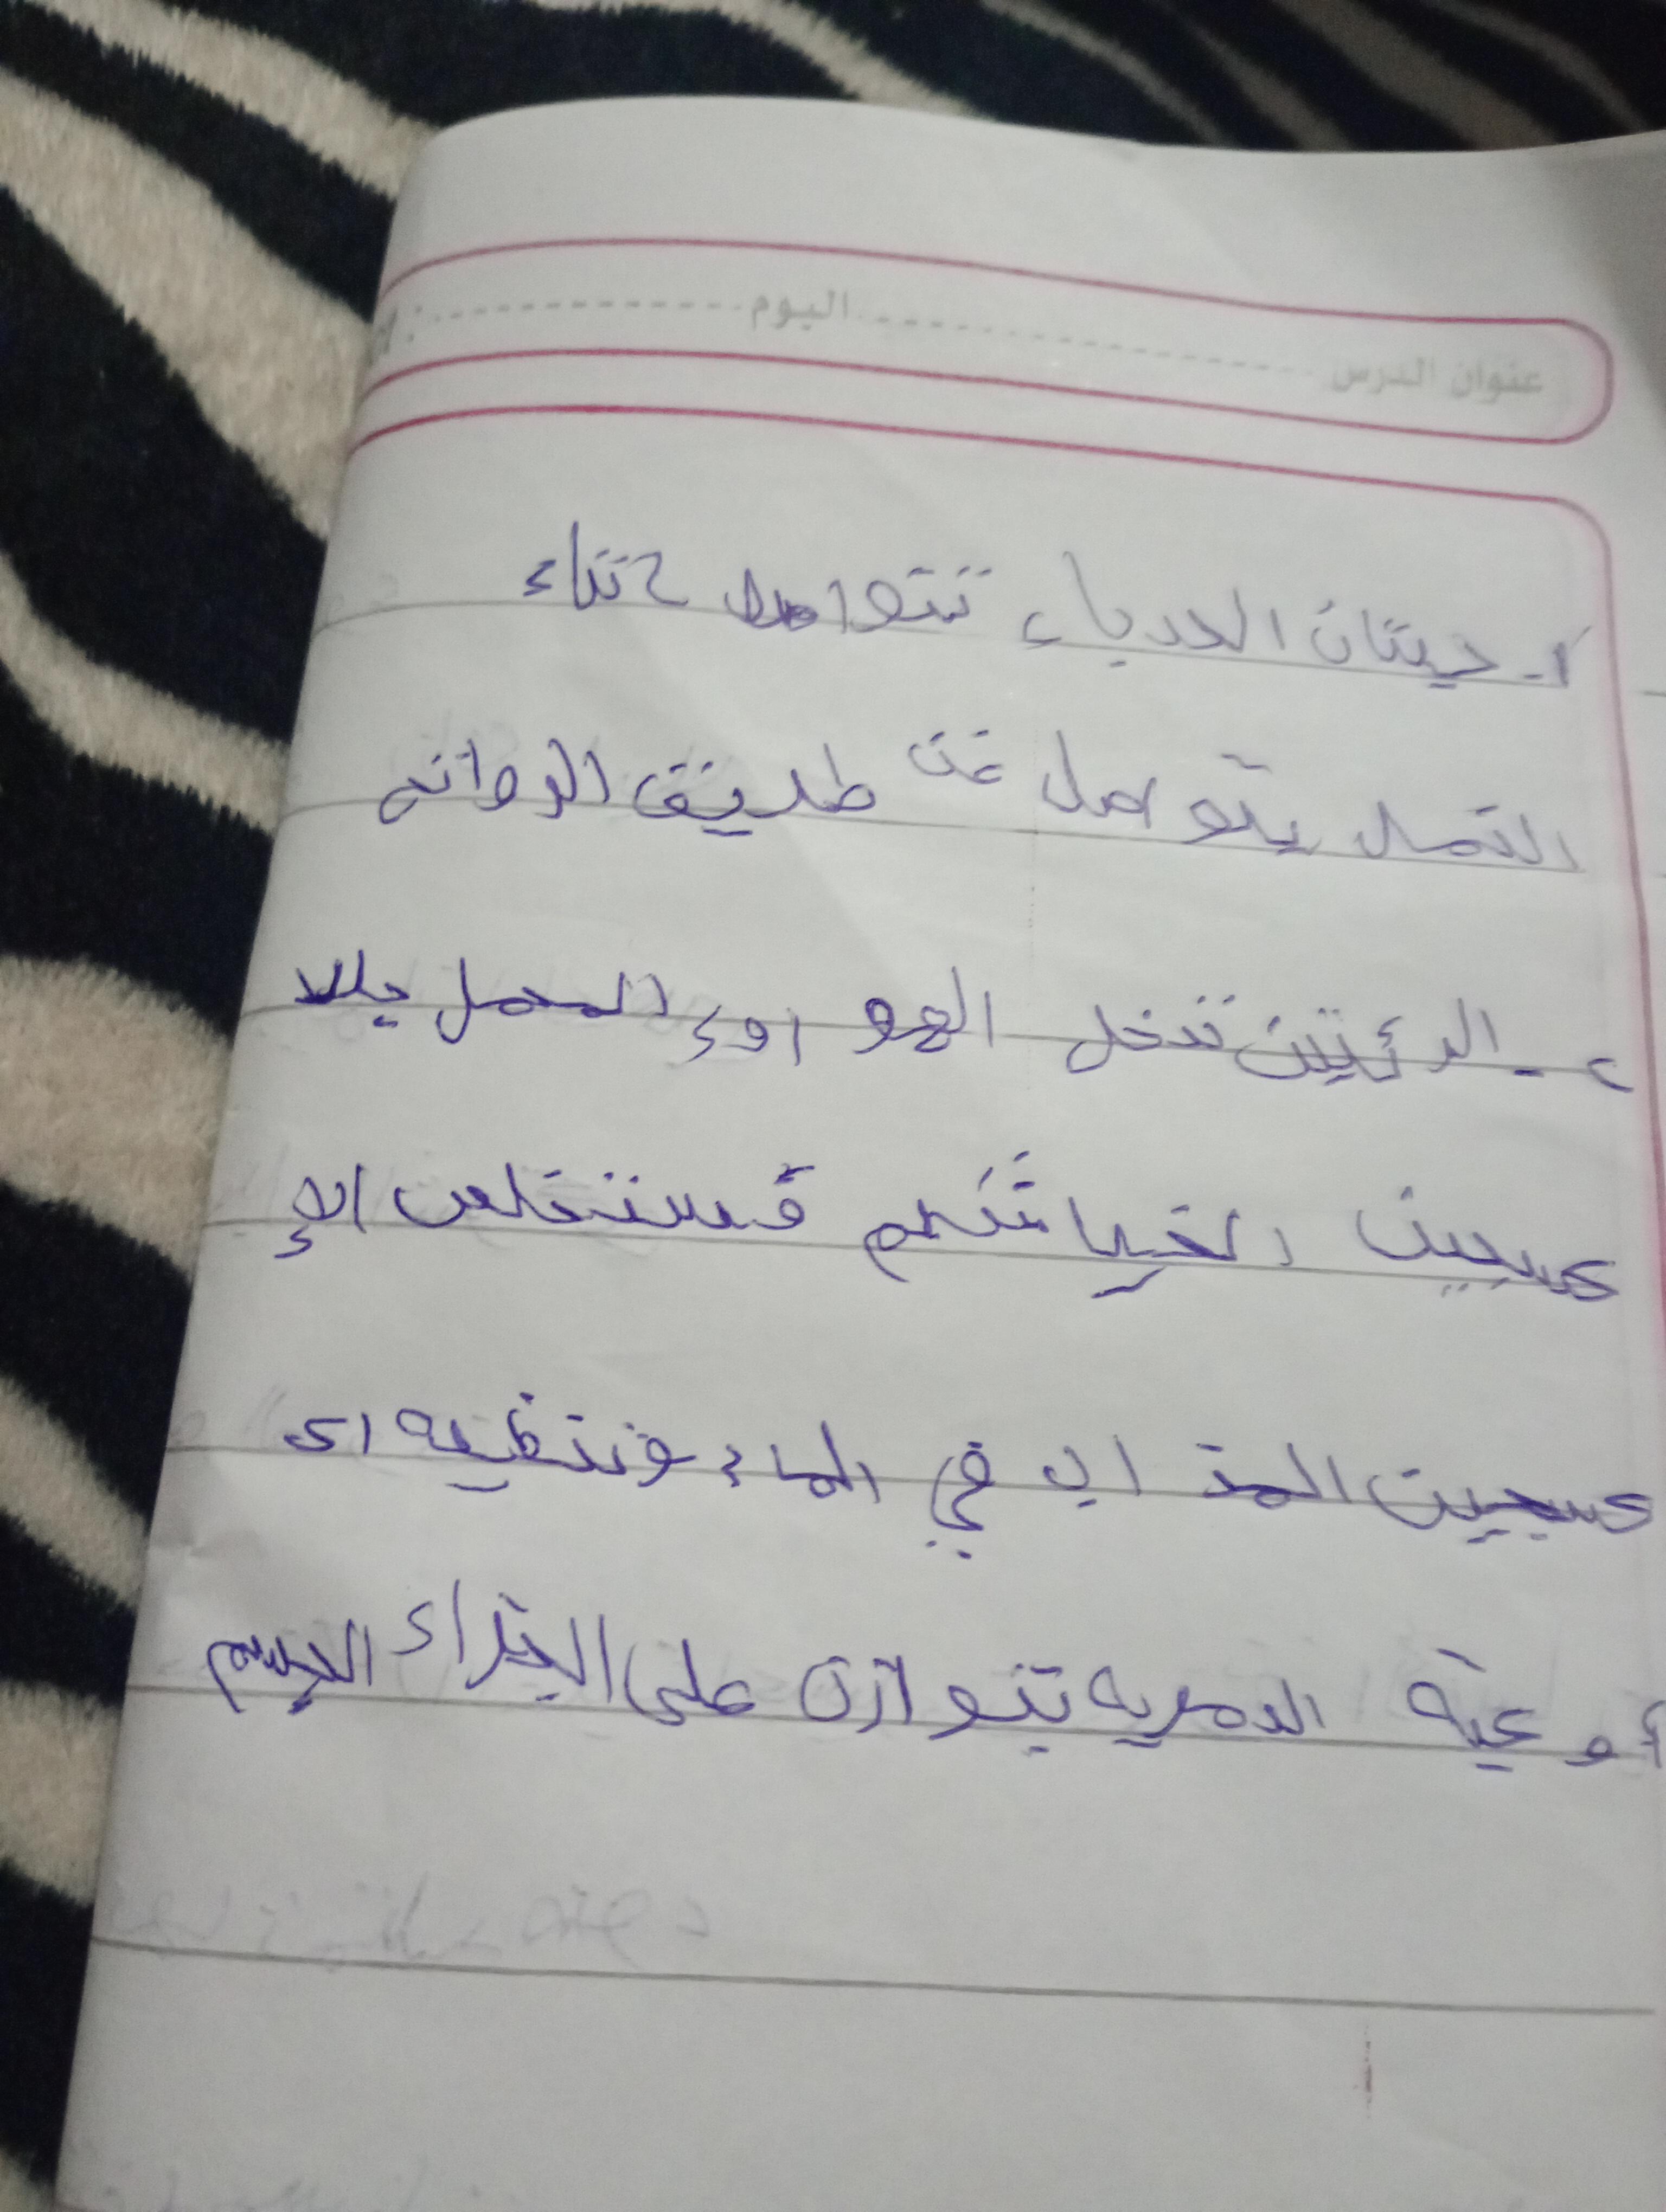 عنوان الدرس اليوم
١- حيتان الحدباء تتواصل اثناء
النمل يتوصل عن طريق الروائح
٢- الرئتين تدخل الهو اوء المحمل بالا
كسجين الخياشم فستخلص الإ
كسجين المذ اب في الماء وتنقيه اى
أوعية الدمويه يتوازن على اجزاء الجسم